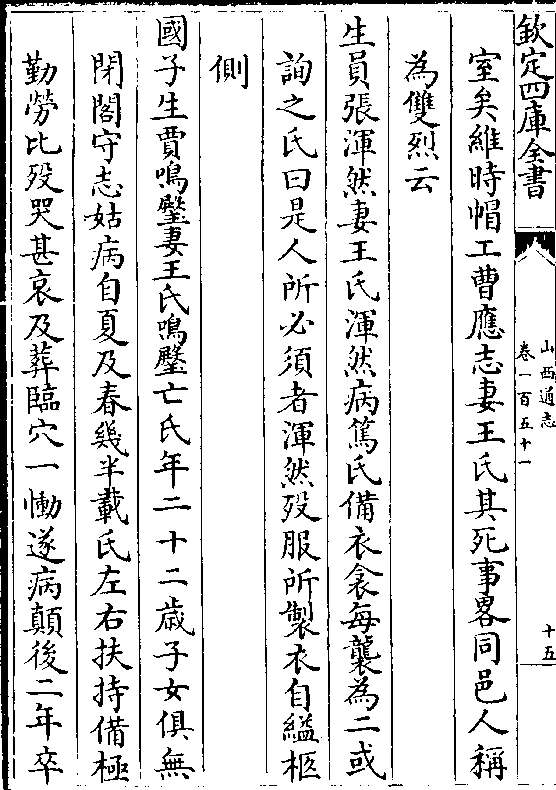 欽定四庫全書
山西通志
卷一百五十一
十五
室矣維時帽工曹應志妻王氏其死事畧同邑人稱
為雙烈云
生員張渾然妻王氏渾然病篤氏備衣衾每襲為二或
詢之氏曰是人所必須者渾然殁服所製衣自縊柩
側
國子生賈鳴璧妻王氏鳴璧亡氏年二十二歲子女俱無
閉閣守志姑病自夏及春幾半載氏左右扶持備極
勤勞比殁哭甚哀及葬臨穴一慟遂病顛後二年卒